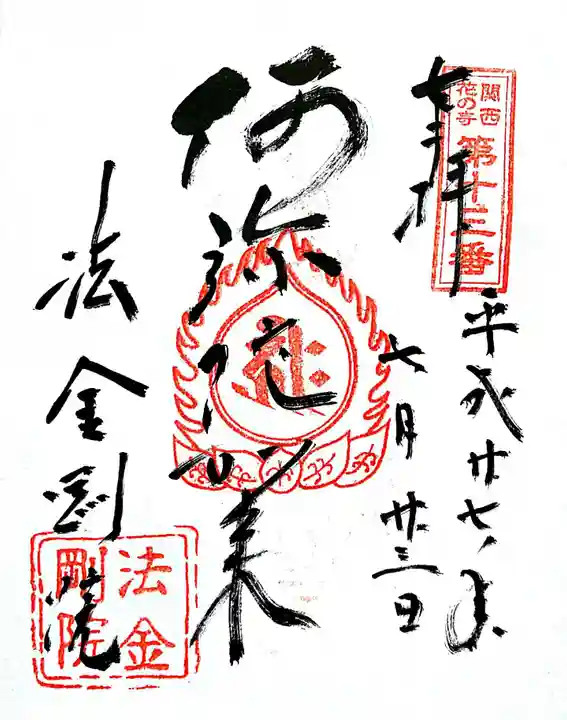 奉拝
関西
花の寺
第十三番
平成廿七年
七月廿三日
阿弥陀如来
法金剛院
法金
剛院